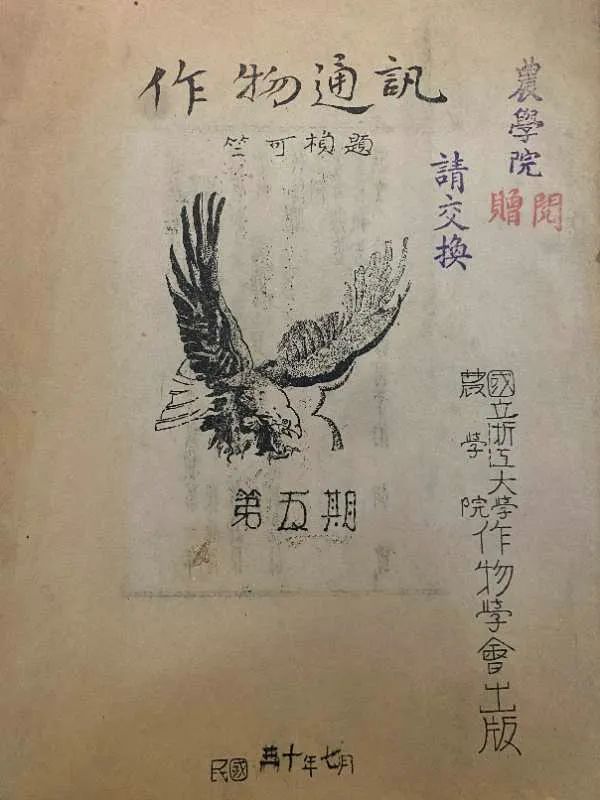 作物通訊
竺可楨題
農學院
請交換
贈閱
第五期
國立浙江大學
農學院
作物學會出版
民國卅十年七月